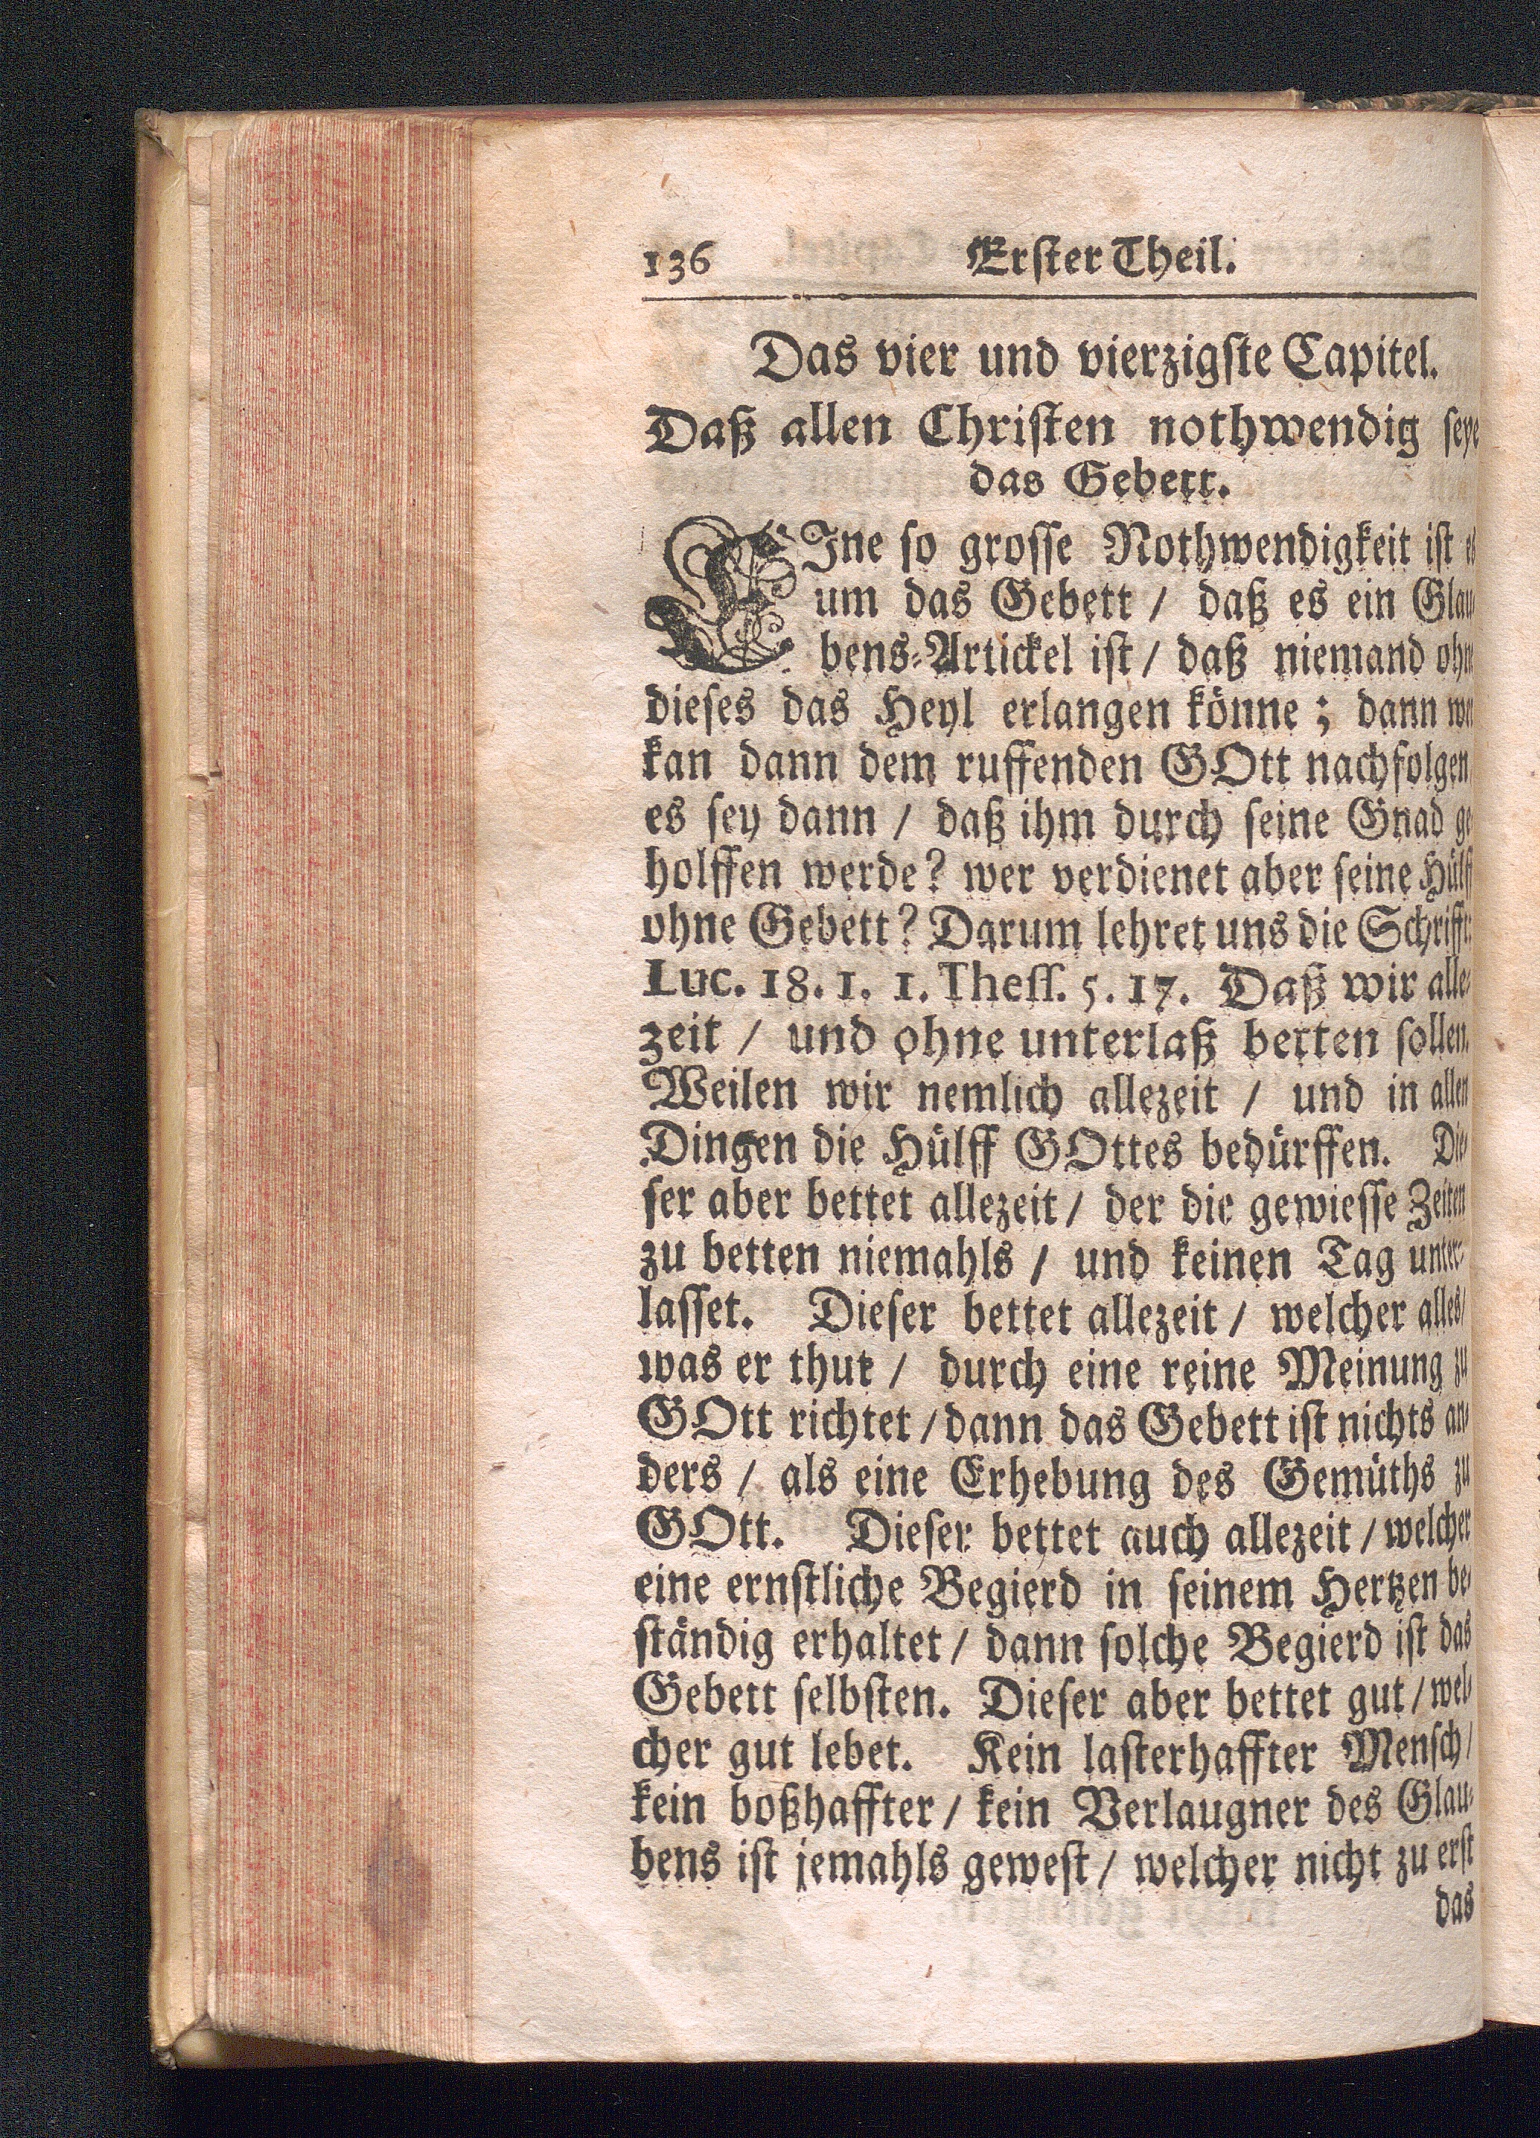 136 Erster Theil.
Das vier und vierzigste Capitel.
Daß allen Christen nothwendig seye
das Gebett.
EIne so grosse Nothwendigkeit ist es
um das Gebett / daß es ein Glau-
bens-Artickel ist / daß niemand ohne
dieses das Heyl erlangen könne; dann wer
kan dann dem ruffenden GOtt nachfolgen
es sey dann / daß ihm durch seine Gnad ge-
holffen werde? wer verdienet aber seine Hülff
ohne Gebett? Darum lehret uns die Schrifft:
Luc. 18. 1. 1. Thess. 5. 17. Daß wir alle-
zeit / und ohne unterlaß betten sollen.
Weilen wir nemlich allezeit / und in allen
Dingen die Hülff GOttes bedürffen. Die-
ser aber bettet allezeit / der die gewiesse Zeiten
zu betten niemahls / und keinen Tag unter-
lasset. Dieser bettet allezeit / welcher alles /
was er thut / durch eine reine Meinung zu
GOtt richtet / dann das Gebett ist nichts an-
ders / als eine Erhebung des Gemüths zu
GOtt. Dieser bettet auch allezeit / welcher
eine ernstliche Begierd in seinem Hertzen be-
ständig erhaltet / dann solche Begierd ist das
Gebett selbsten. Dieser aber bettet gut / wel-
cher gut lebet. Kein lasterhaffter Mensch /
kein boßhaffter / kein Verlaugner des Glau-
bens ist jemahls gewest / welcher nicht zu erst
das